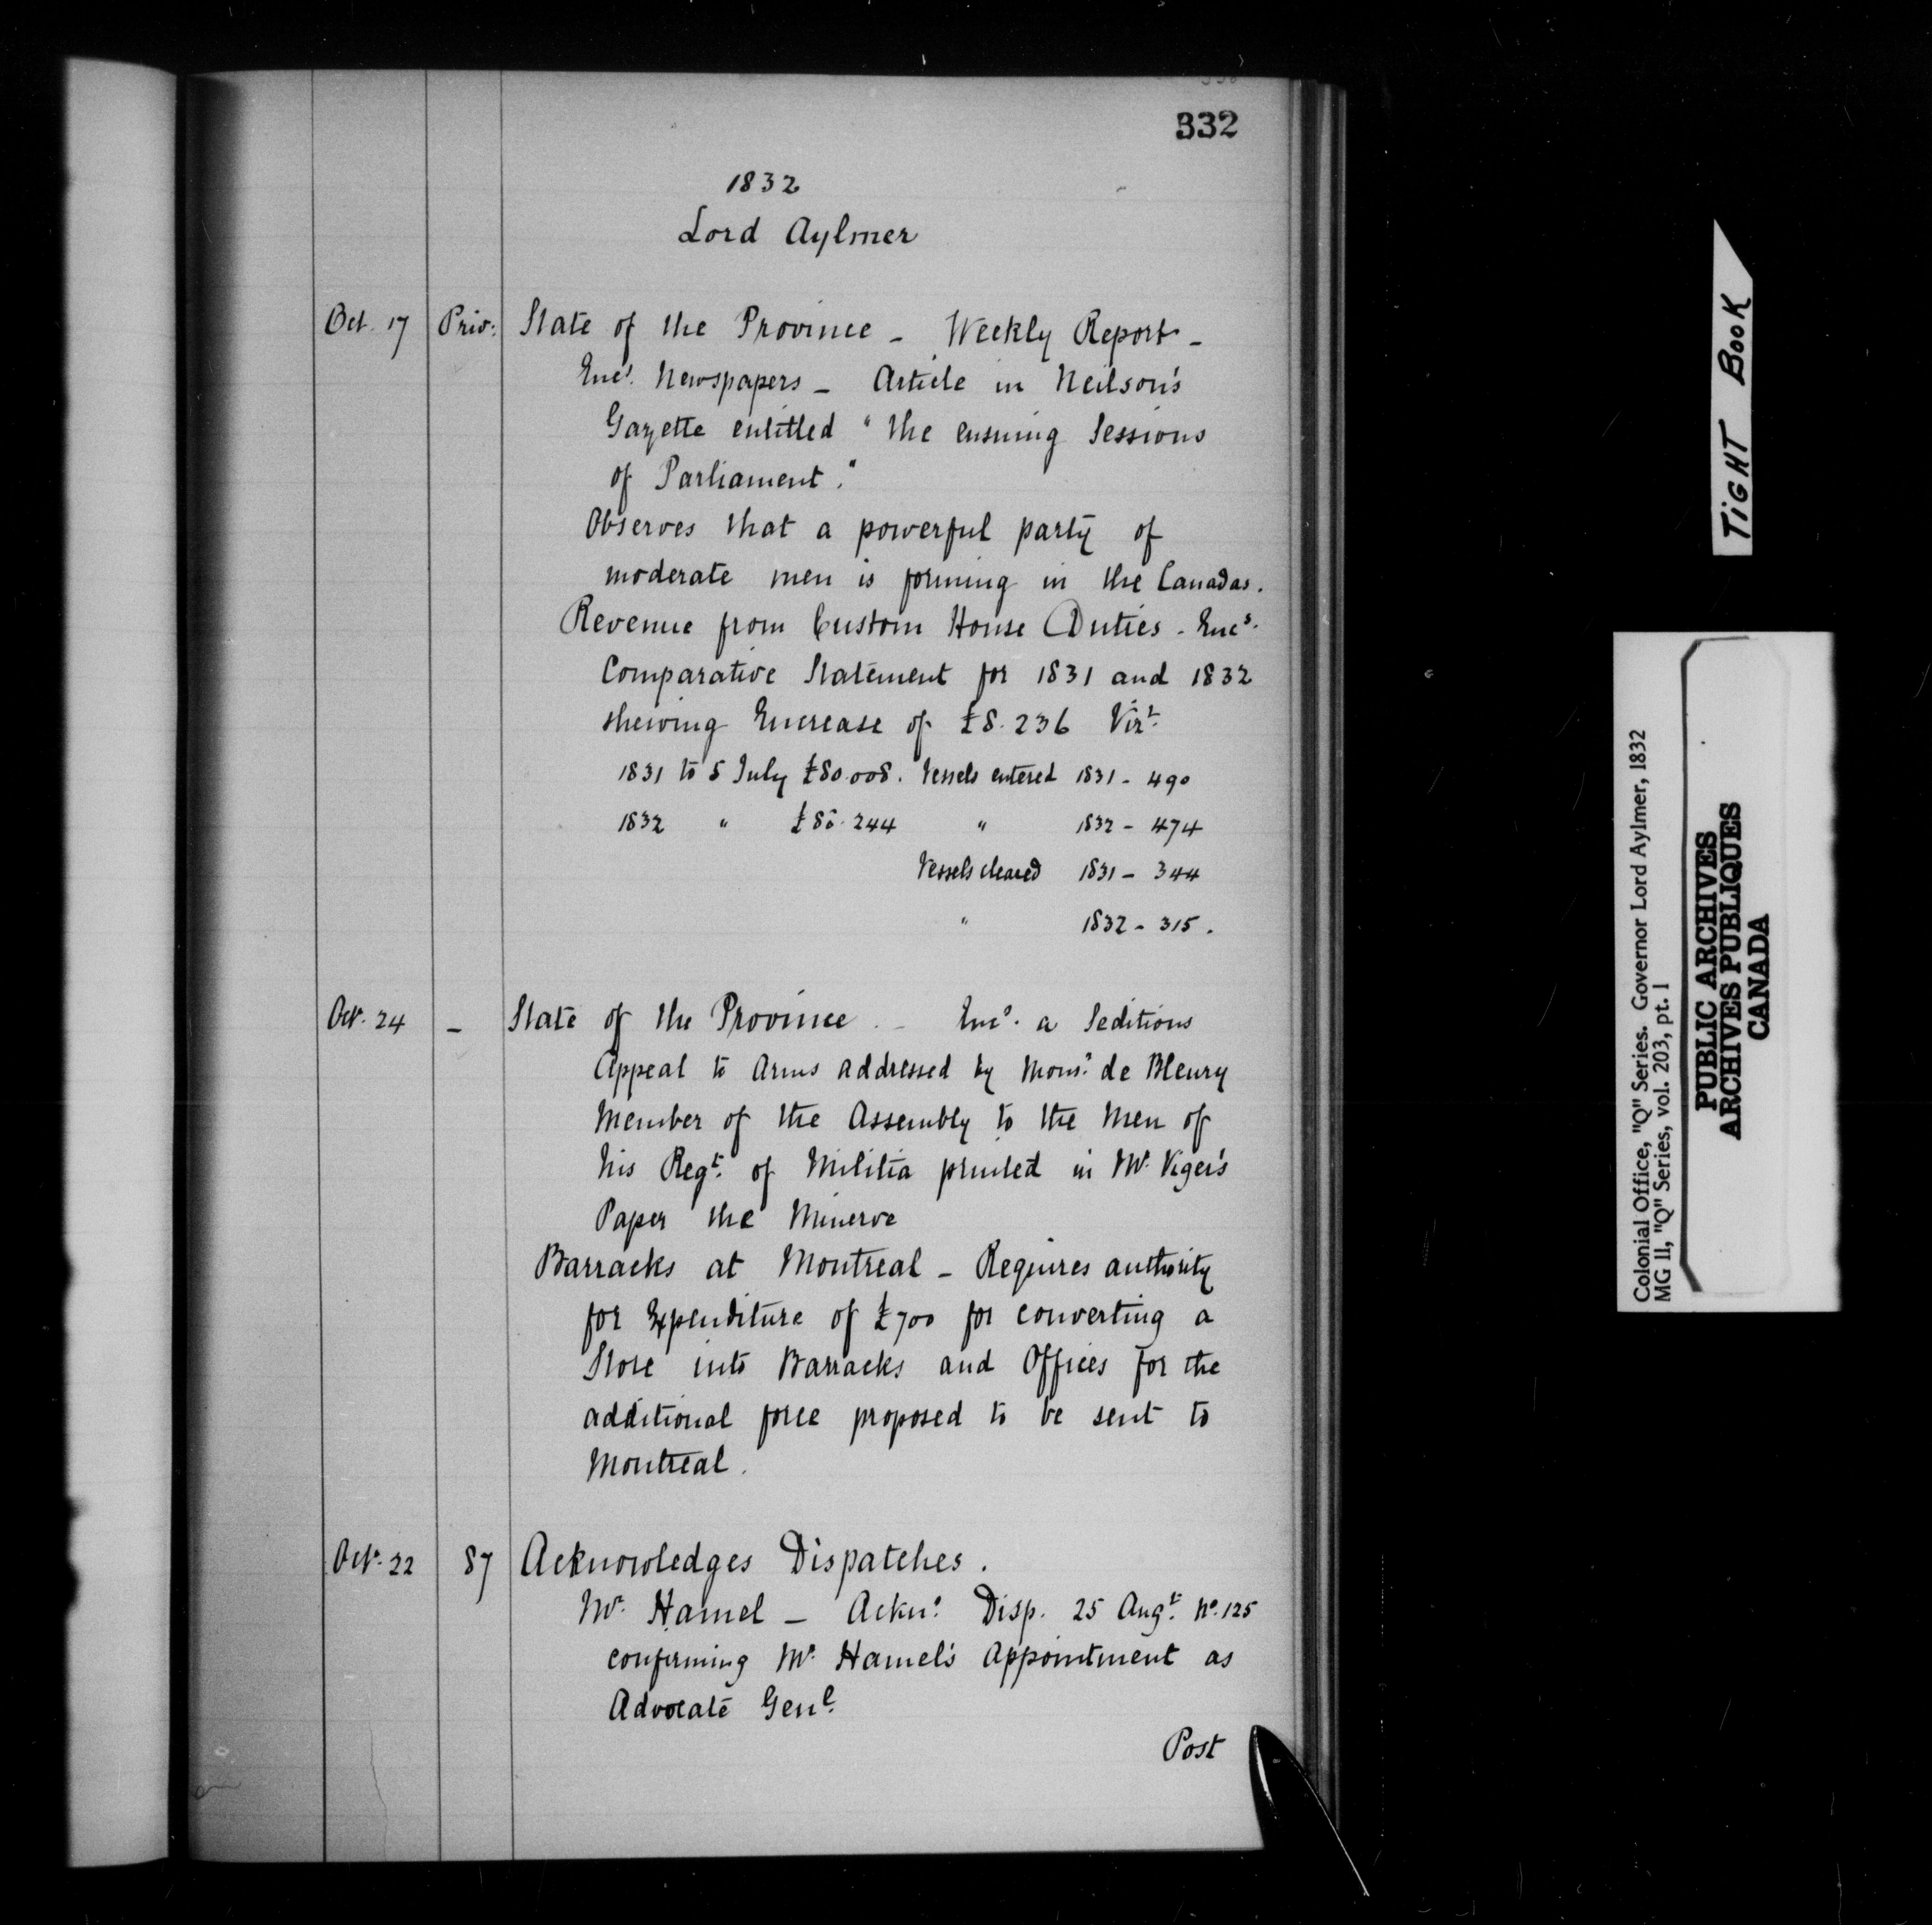 332
1832
Lord Aylmer
Oct. 17 Priv: State of the Province - Weekly Report -
Encs. Newspapers - Article in Neilson's
Gazette entitled "the ensuing Sessions
of Parliament."
Observes that a powerful party of
moderate men is forming in the Canadas.
Revenue from Custom House Duties - Encs.
Comparative Statement for 1831 and 1832
shewing Encrease of £8.236 Vizt.
1831 to 5 July £80.008. Vessels entered 1831 - 490
1832 " £88.244 " 1832 - 474
Vessels cleared 1831 - 344
" 1832 - 315.
Oct. 24 - State of the Province. - Encs. a Seditious
Appeal to Arms addressed by Monsr. de Bleury
Member of the Assembly to the Men of
his Regt. of Militia printed in Mr. Viger's
Paper the Minerve
Barracks at Montreal - Requires authority
for Expenditure of £700 for converting a
Store into Barracks and Offices for the
additional force proposed to be sent to
Montreal.
Oct. 22 87 Acknowledges Dispatches.
Mr. Hamel - Ackns. Disp. 25 Augt. No. 125
confirming Mr. Hamel's Appointment as
Advocate Genl.
Post
TIGHT BOOK
Colonial Office, "Q" Series. Governor Lord Aylmer, 1832
MG 11, "Q" Series, vol. 203, pt. 1
PUBLIC ARCHIVES
ARCHIVES PUBLIQUES
CANADA